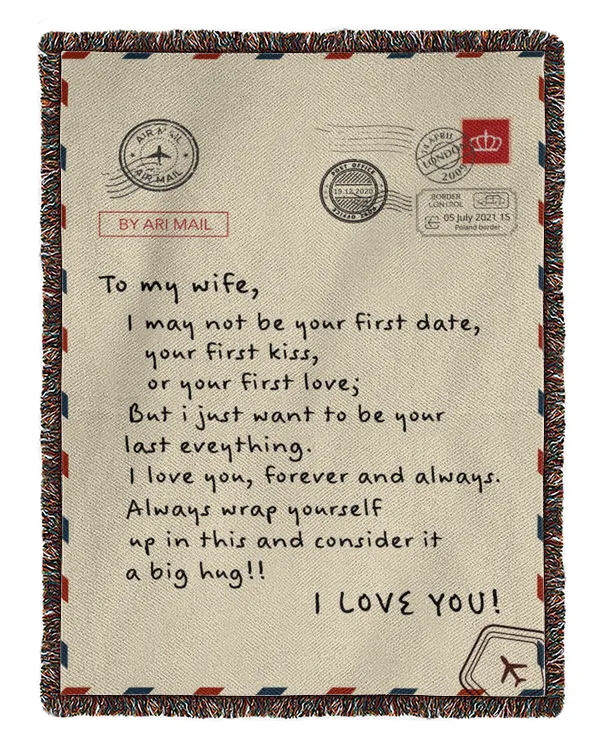 AIR MAIL
AIR MAIL
14 APRIL
LONDON
2009
POST OFFICE
19.12.2020
POST OFFICE
BORDER
CONTROL
05 July 2021 15
Poland border
BY ARI MAIL
To my wife,
I may not be your first date,
your first kiss,
or your first love;
But i just want to be your
last eveything.
I love you, forever and always.
Always wrap yourself
up in this and consider it
a big hug!!
I LOVE YOU!